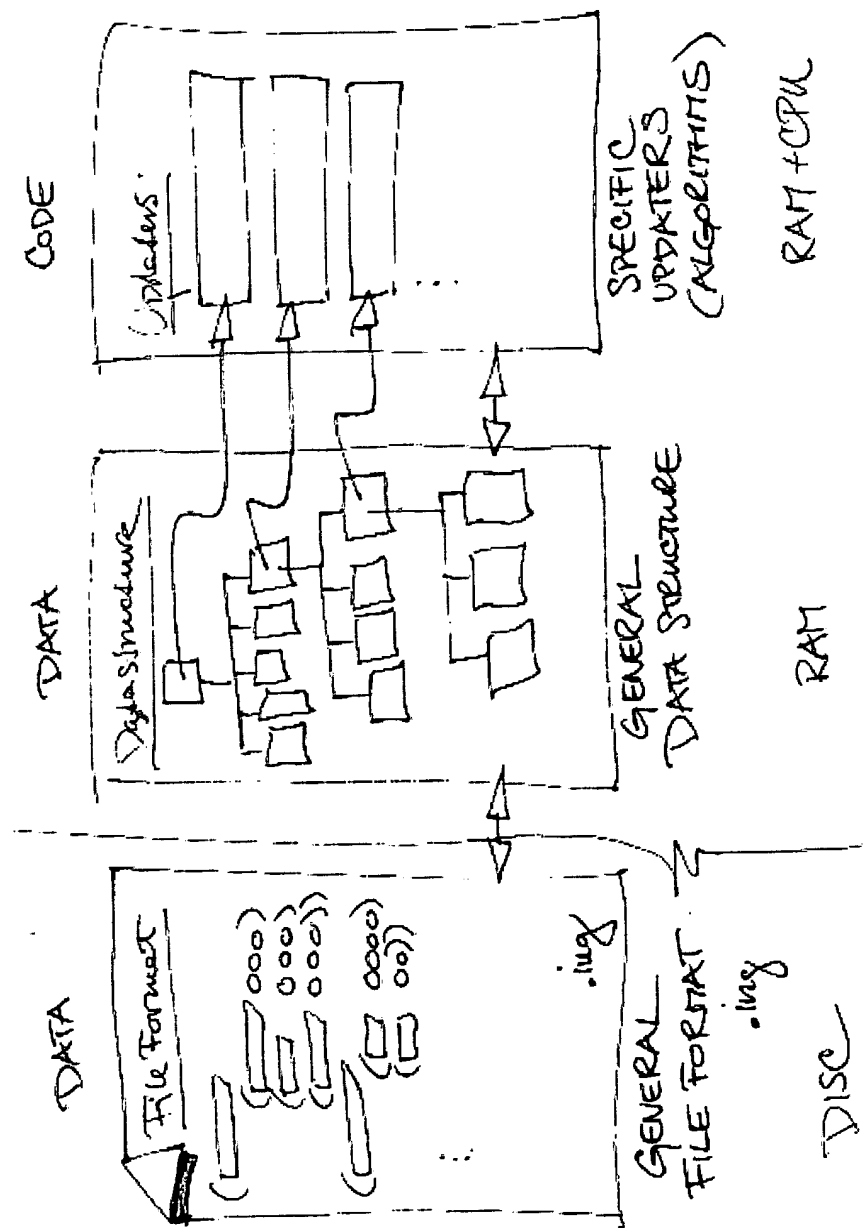 DATA
File Format
( ooo)
( ooo)
( ooo))
( oooo)
( oo))
...
.ing
GENERAL
FILE FORMAT
.ing
DISC
DATA
Data Structure
GENERAL
DATA STRUCTURE
RAM
CODE
Updaters
...
SPECIFIC
UPDATERS
(ALGORITHMS)
RAM + CPU